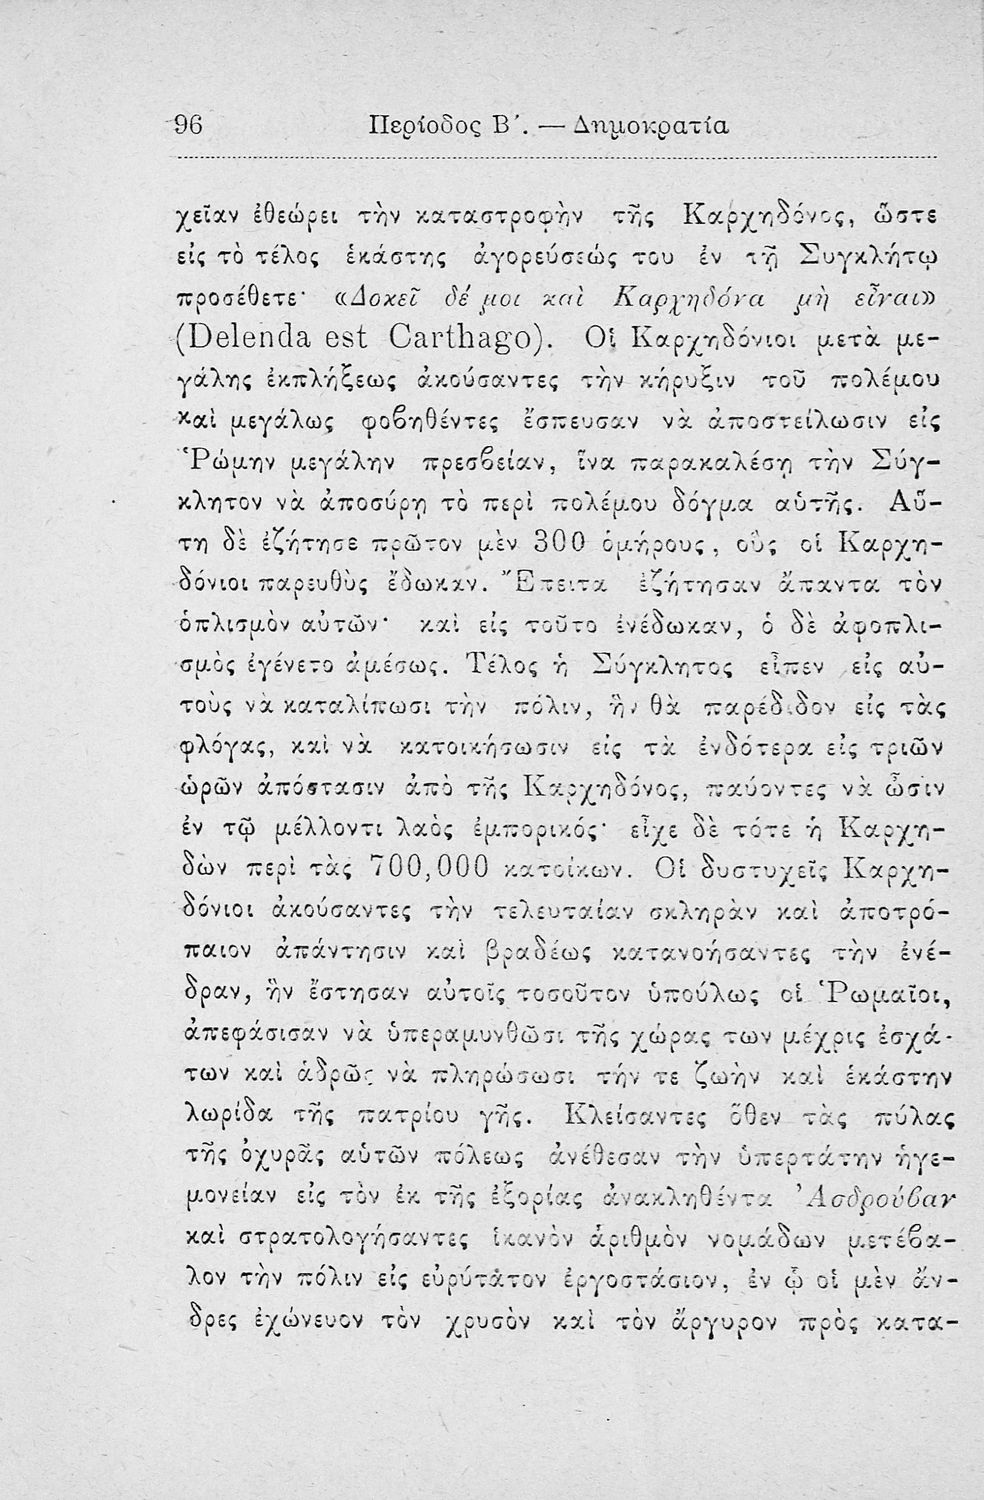 96 Περίοδος Β΄. — Δημοκρατία
χεῖαν ἐθεώρει τὴν καταστροφὴν τῆς Καρχηδόνος, ὥστε
εἰς τὸ τέλος ἑκάστης ἀγορεύσεώς του ἐν τῇ Συγκλήτῳ
προσέθετε· «Δοκεῖ δέ μοι καὶ Καρχηδόνα μὴ εἶναι»
(Delenda est Carthago). Οἱ Καρχηδόνιοι μετὰ με-
γάλης ἐκπλήξεως ἀκούσαντες τὴν κήρυξιν τοῦ πολέμου
καὶ μεγάλως φοβηθέντες ἔσπευσαν νὰ ἀποστείλωσιν εἰς
Ῥώμην μεγάλην πρεσβείαν, ἵνα παρακαλέσῃ τὴν Σύγ-
κλητον νὰ ἀποσύρῃ τὸ περὶ πολέμου δόγμα αὑτῆς. Αὕ-
τη δὲ ἐζήτησε πρῶτον μὲν 300 ὁμήρους, οὓς οἱ Καρχη-
δόνιοι παρευθὺς ἔδωκαν. Ἔπειτα ἐζήτησαν ἅπαντα τὸν
ὁπλισμὸν αὐτῶν· καὶ εἰς τοῦτο ἐνέδωκαν, ὁ δὲ ἀφοπλι-
σμὸς ἐγένετο ἀμέσως. Τέλος ἡ Σύγκλητος εἶπεν εἰς αὐ-
τοὺς νὰ καταλίπωσι τὴν πόλιν, ἣν θὰ παρέδιδον εἰς τὰς
φλόγας, καὶ νὰ κατοικήσωσιν εἰς τὰ ἐνδότερα εἰς τριῶν
ὡρῶν ἀπόστασιν ἀπὸ τῆς Καρχηδόνος, παύοντες νὰ ὦσιν
ἐν τῷ μέλλοντι λαὸς ἐμπορικός· εἶχε δὲ τότε ἡ Καρχη-
δὼν περὶ τὰς 700,000 κατοίκων. Οἱ δυστυχεῖς Καρχη-
δόνιοι ἀκούσαντες τὴν τελευταίαν σκληρὰν καὶ ἀποτρό-
παιον ἀπάντησιν καὶ βραδέως κατανοήσαντες τὴν ἐνέ-
δραν, ἣν ἔστησαν αὐτοῖς τοσοῦτον ὑπούλως οἱ Ῥωμαῖοι,
ἀπεφάσισαν νὰ ὑπεραμυνθῶσι τῆς χώρας των μέχρις ἐσχά-
των καὶ ἁδρῶς νὰ πληρώσωσι τήν τε ζωὴν καὶ ἑκάστην
λωρίδα τῆς πατρίου γῆς. Κλείσαντες ὅθεν τὰς πύλας
τῆς ὀχυρᾶς αὑτῶν πόλεως ἀνέθεσαν τὴν ὑπερτάτην ἡγε-
μονείαν εἰς τὸν ἐκ τῆς ἐξορίας ἀνακληθέντα Ἀσδρούβαν
καὶ στρατολογήσαντες ἱκανὸν ἀριθμὸν νομάδων μετέβα-
λον τὴν πόλιν εἰς εὐρύτατον ἐργοστάσιον, ἐν ᾧ οἱ μὲν ἄν-
δρες ἐχώνευον τὸν χρυσὸν καὶ τὸν ἄργυρον πρὸς κατα-